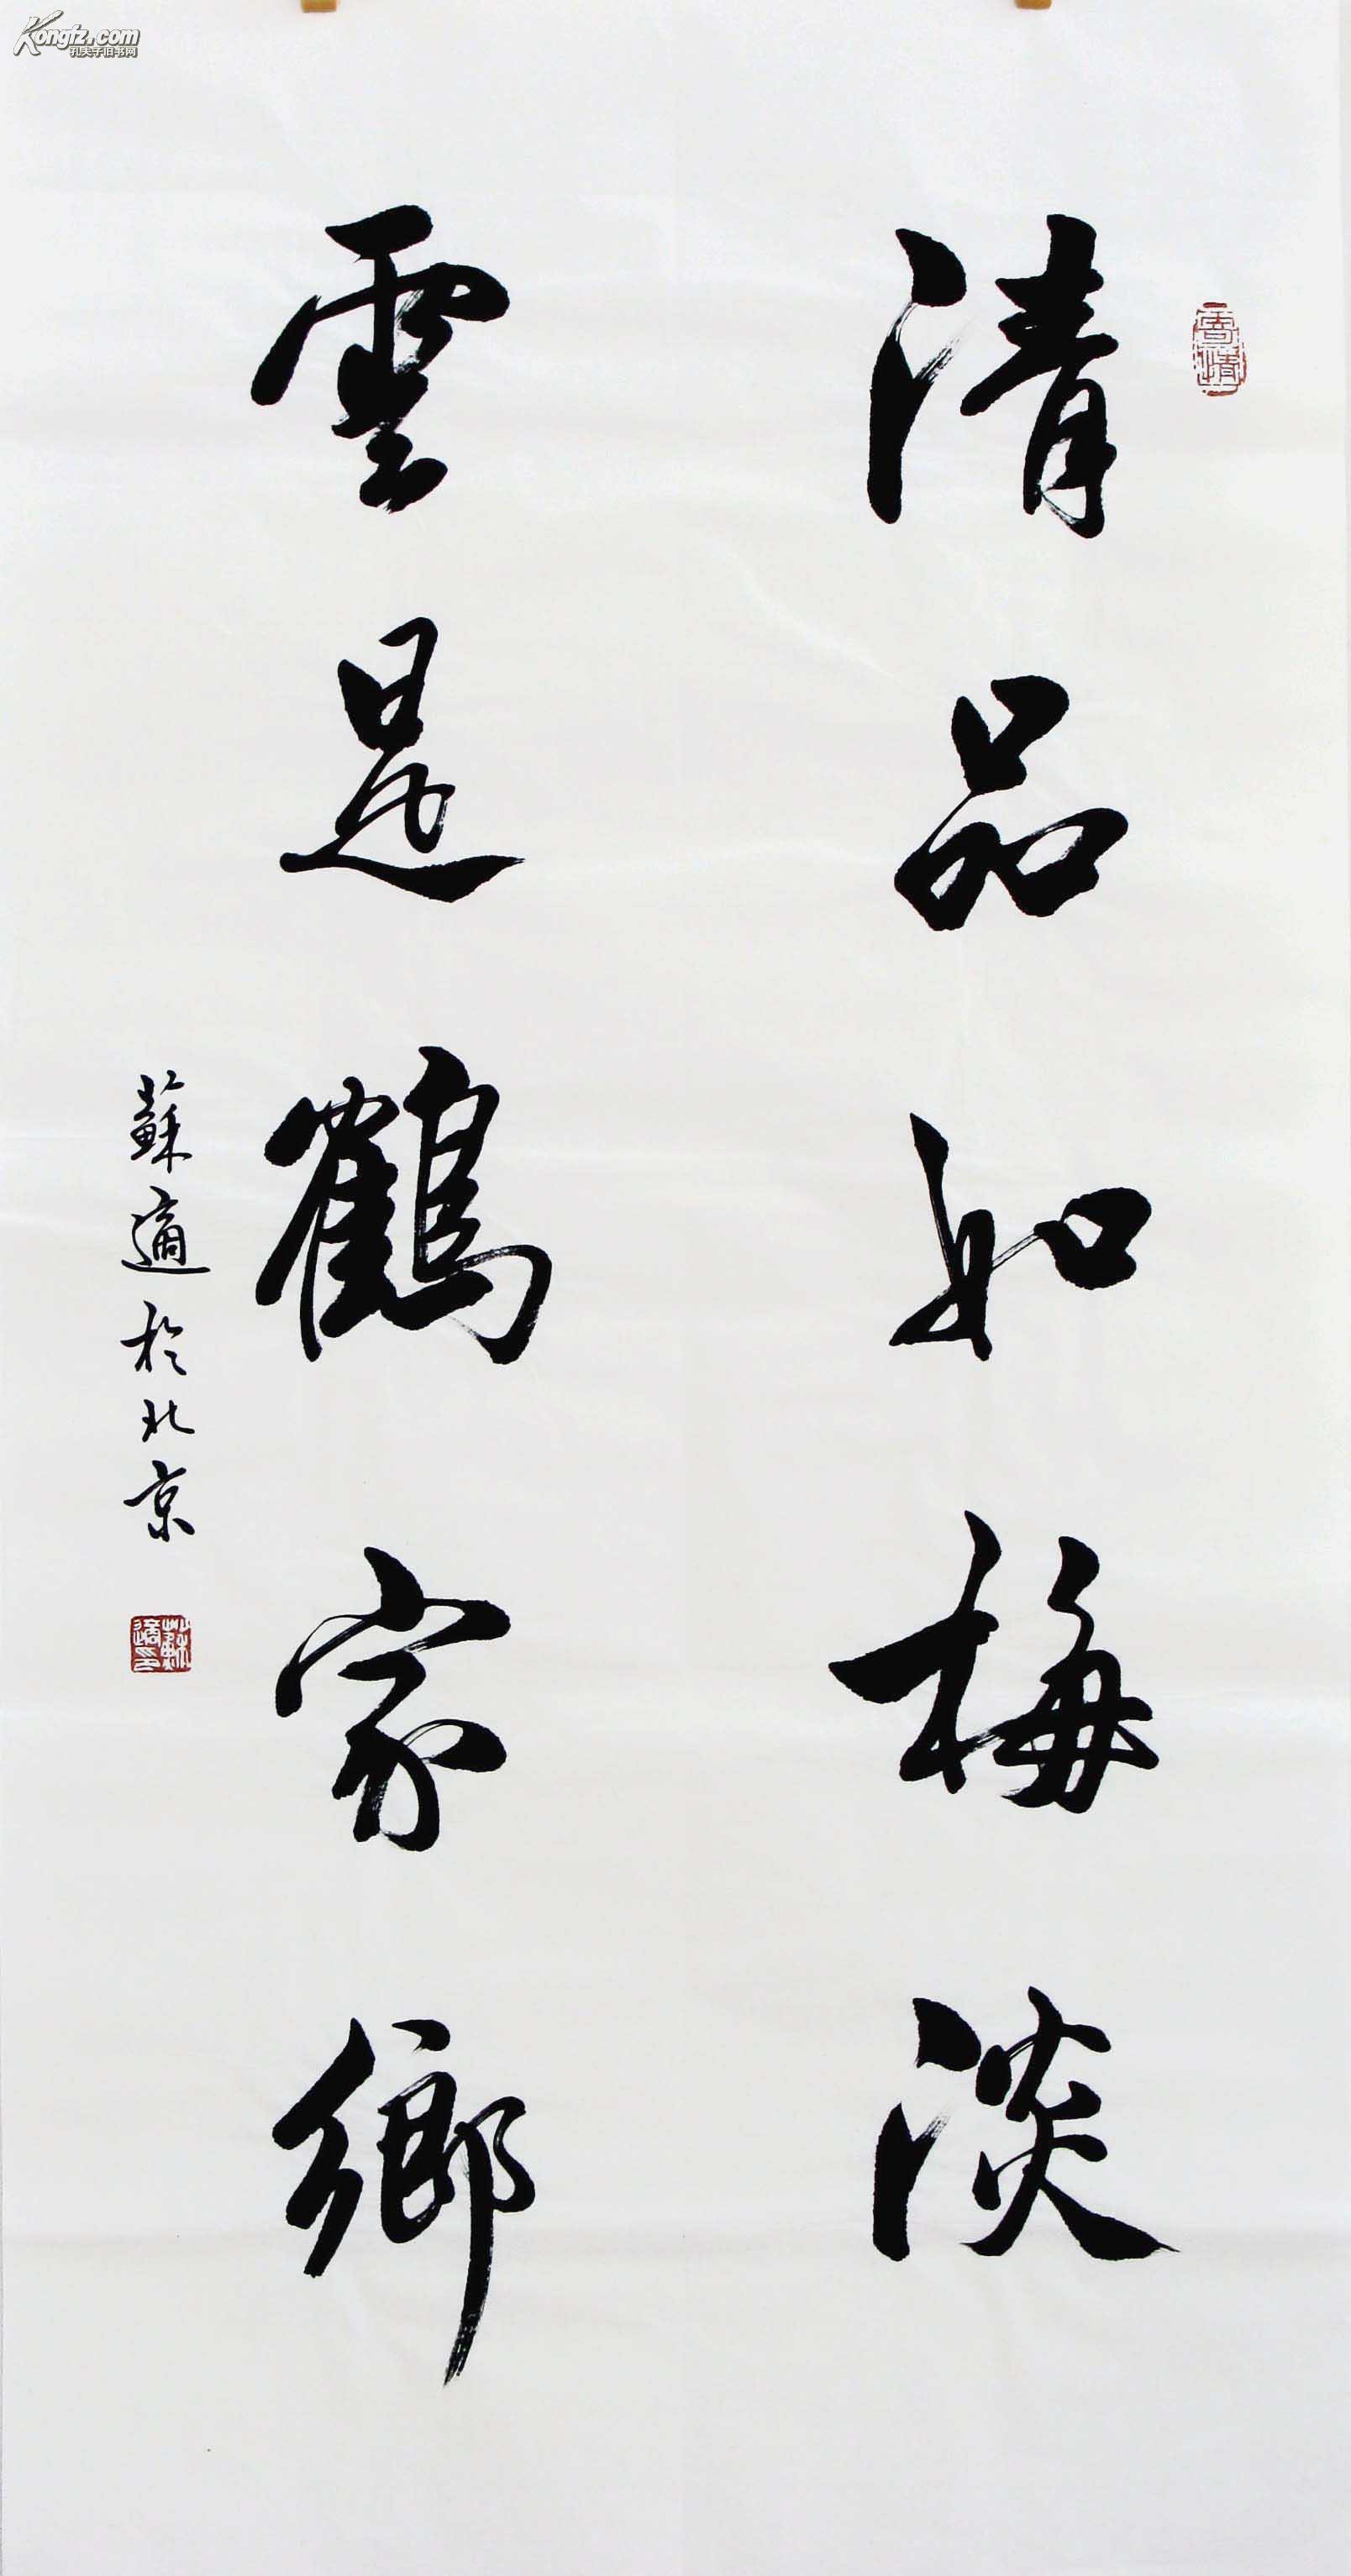 Kongfz.com
孔夫子旧书网
清品如梅淡
雲是鶴家鄉
蘇適於北京
蘇適之印